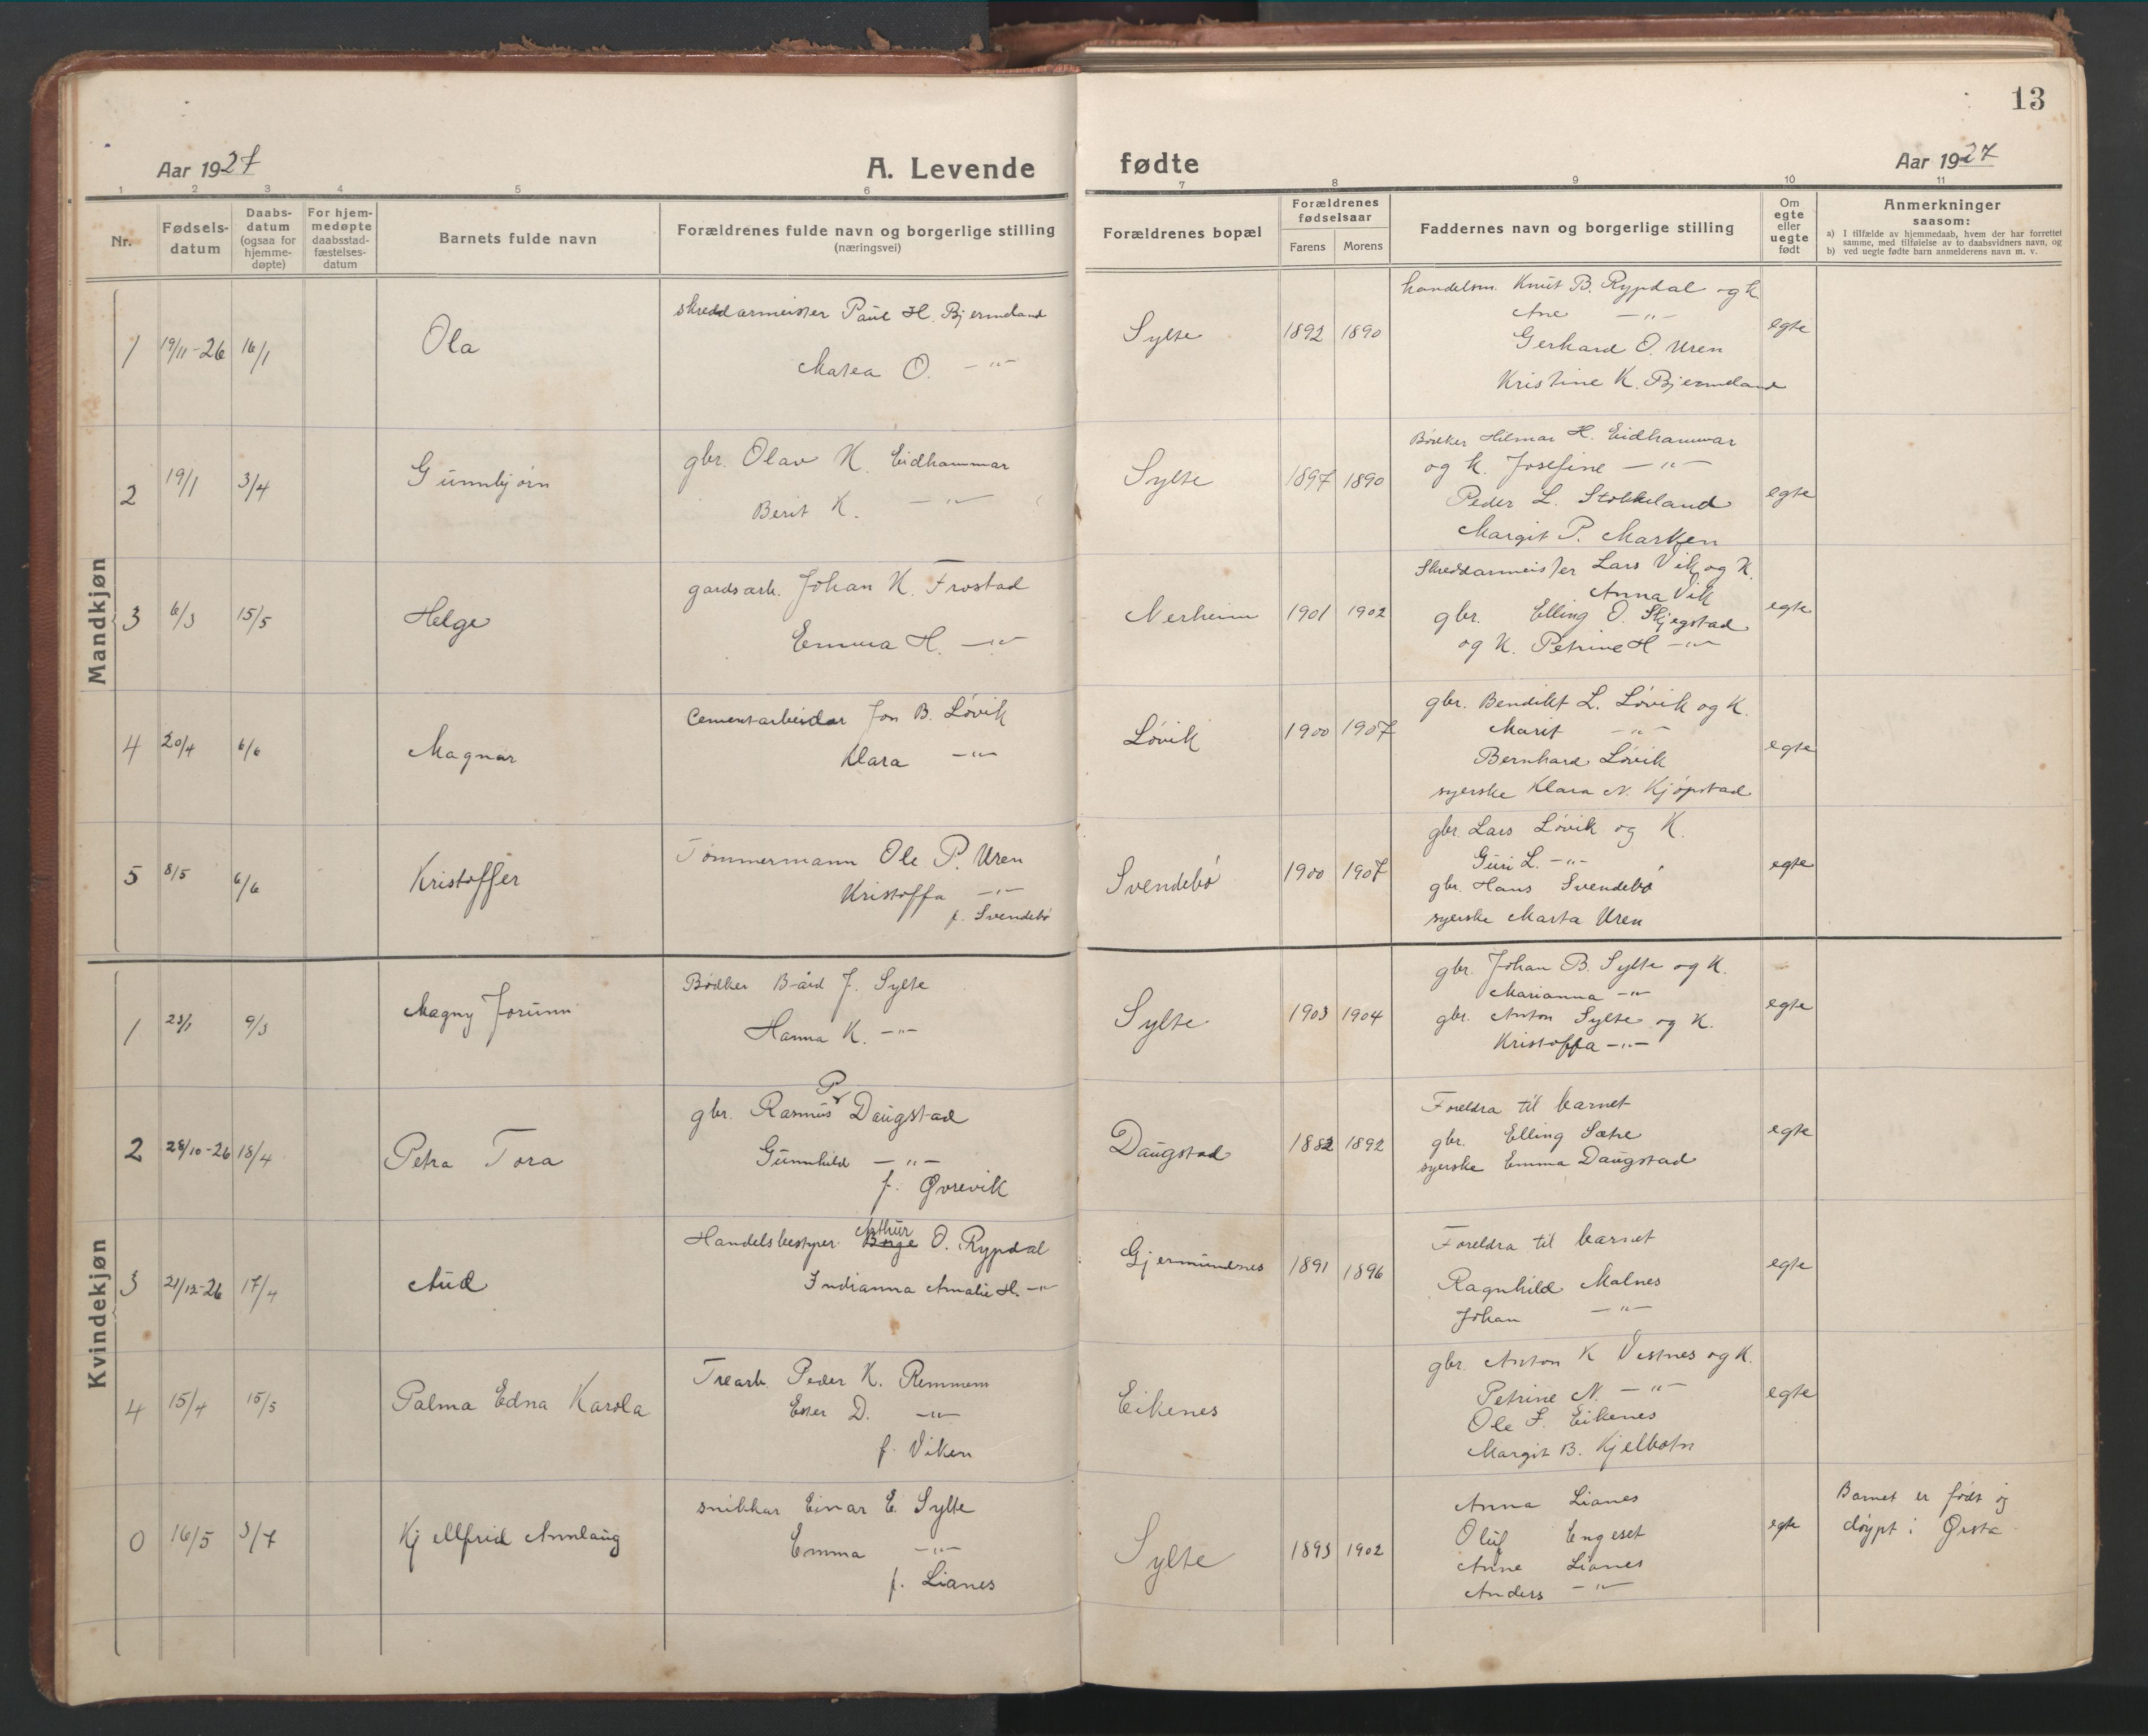 13
Aar 1927
A. Levende fødte
Aar 1927
1 2 3 4 5 6 7 8 9 10 11
Nr.
Fødsels-
datum
Daabs-
datum
(ogsaa for
hjemme-
døpte)
For hjem-
medøpte
daabsstad-
fæstelses-
datum
Barnets fulde navn
Forældrenes fulde navn og borgerlige stilling
(næringsvei)
Forældrenes bopæl
Forældrenes
fødselsaar
Farens Morens
Faddernes navn og borgerlige stilling
Om
egte
eller
uegte
født
Anmerkninger
saasom:
a) I tilfælde av hjemmedaab, hvem der har forrettet
samme, med tilføielse av to daabsvidners navn, og
b) ved uegte fødte barn anmelderens navn m. v.
Mandkjøn
1 19/11-26 16/1 Ola
skreddarmeister Paul H. Bjermeland
Marea O. -"-
Sylte 1892 1890
handelsm. Knut B. Rypdal og k.
Ane -"-
Gerhard O. Uren
Kristine K. Bjermeland
egte
2 19/1 3/4 Gunnbjørn
gbr. Olav K. Eidhammar
Berit K. -"-
Sylte 1897 1890
Bødker Hilmar H. Eidhammar
og k. Josefine -"-
Peder L. Stokkeland
Margit P. Marken
egte
3 6/3 15/5 Helge
gardsarb. Johan K. Frostad
Emma H. -"-
Nerheim 1901 1902
Skreddarmeister Lars Vik og K.
Anna Vik
gbr. Elling O. Skjegstad
og K. Petrine H -"-
egte
4 20/4 6/6 Magnar
Cementarbeidar Jon B. Løvik
Klara -"-
Løvik 1900 1907
gbr. Bendikt L. Løvik og K.
Marit -"-
Bernhard Løvik
syerske Klara N. Kjøpstad
egte
5 8/5 6/6 Kristoffer
Tømmermann Ole P. Uren
Kristoffa -"-
f. Svendebø
Svendebø 1900 1907
gbr. Lars Løvik og K.
Guri L. -"-
gbr. Hans Svendebø
syerske Marta Uren
egte
Kvindekjøn
1 23/1 9/3 Magny Jorunn
Bødker Bård J. Sylte
Hanna K. -"-
Sylte 1903 1904
gbr. Johan B. Sylte og K.
Marianna -"-
gbr. Anton Sylte og K.
Kristoffa -"-
egte
2 28/10-26 18/4 Petra Tora
gbr. Rasmus P Daugstad
Gunnhild -"-
f. Øvrevik
Daugstad 1882 1892
Foreldra til barnet
gbr. Elling Sætre
syerske Emma Daugstad
egte
3 21/12-26 17/4 Aud
Arthur
Handelsbestyrer Børge O. Rypdal
Indianna Amalie H. -"-
Gjermundnes 1891 1896
Foreldra til barnet
Ragnhild Malnes
Johan -"-
egte
4 15/4 15/5 Palma Edna Karola
Trearb. Peder K. Remmem
Ester D. -"-
f. Viken
Eikenes
gbr. Anton K Vestnes og K.
Petrine N. -"-
Ole S. Eikenes
Margit B. Kjelbotn
egte
0 16/5 3/7 Kjellfrid Annlaug
snikkar Einar E. Sylte
Emma -"-
f. Lianes
Sylte 1893 1902
Anna Lianes
Oluf Engeset
Anne Lianes
Anders -"-
egte
Barnet er født og
døypt i Ørsta